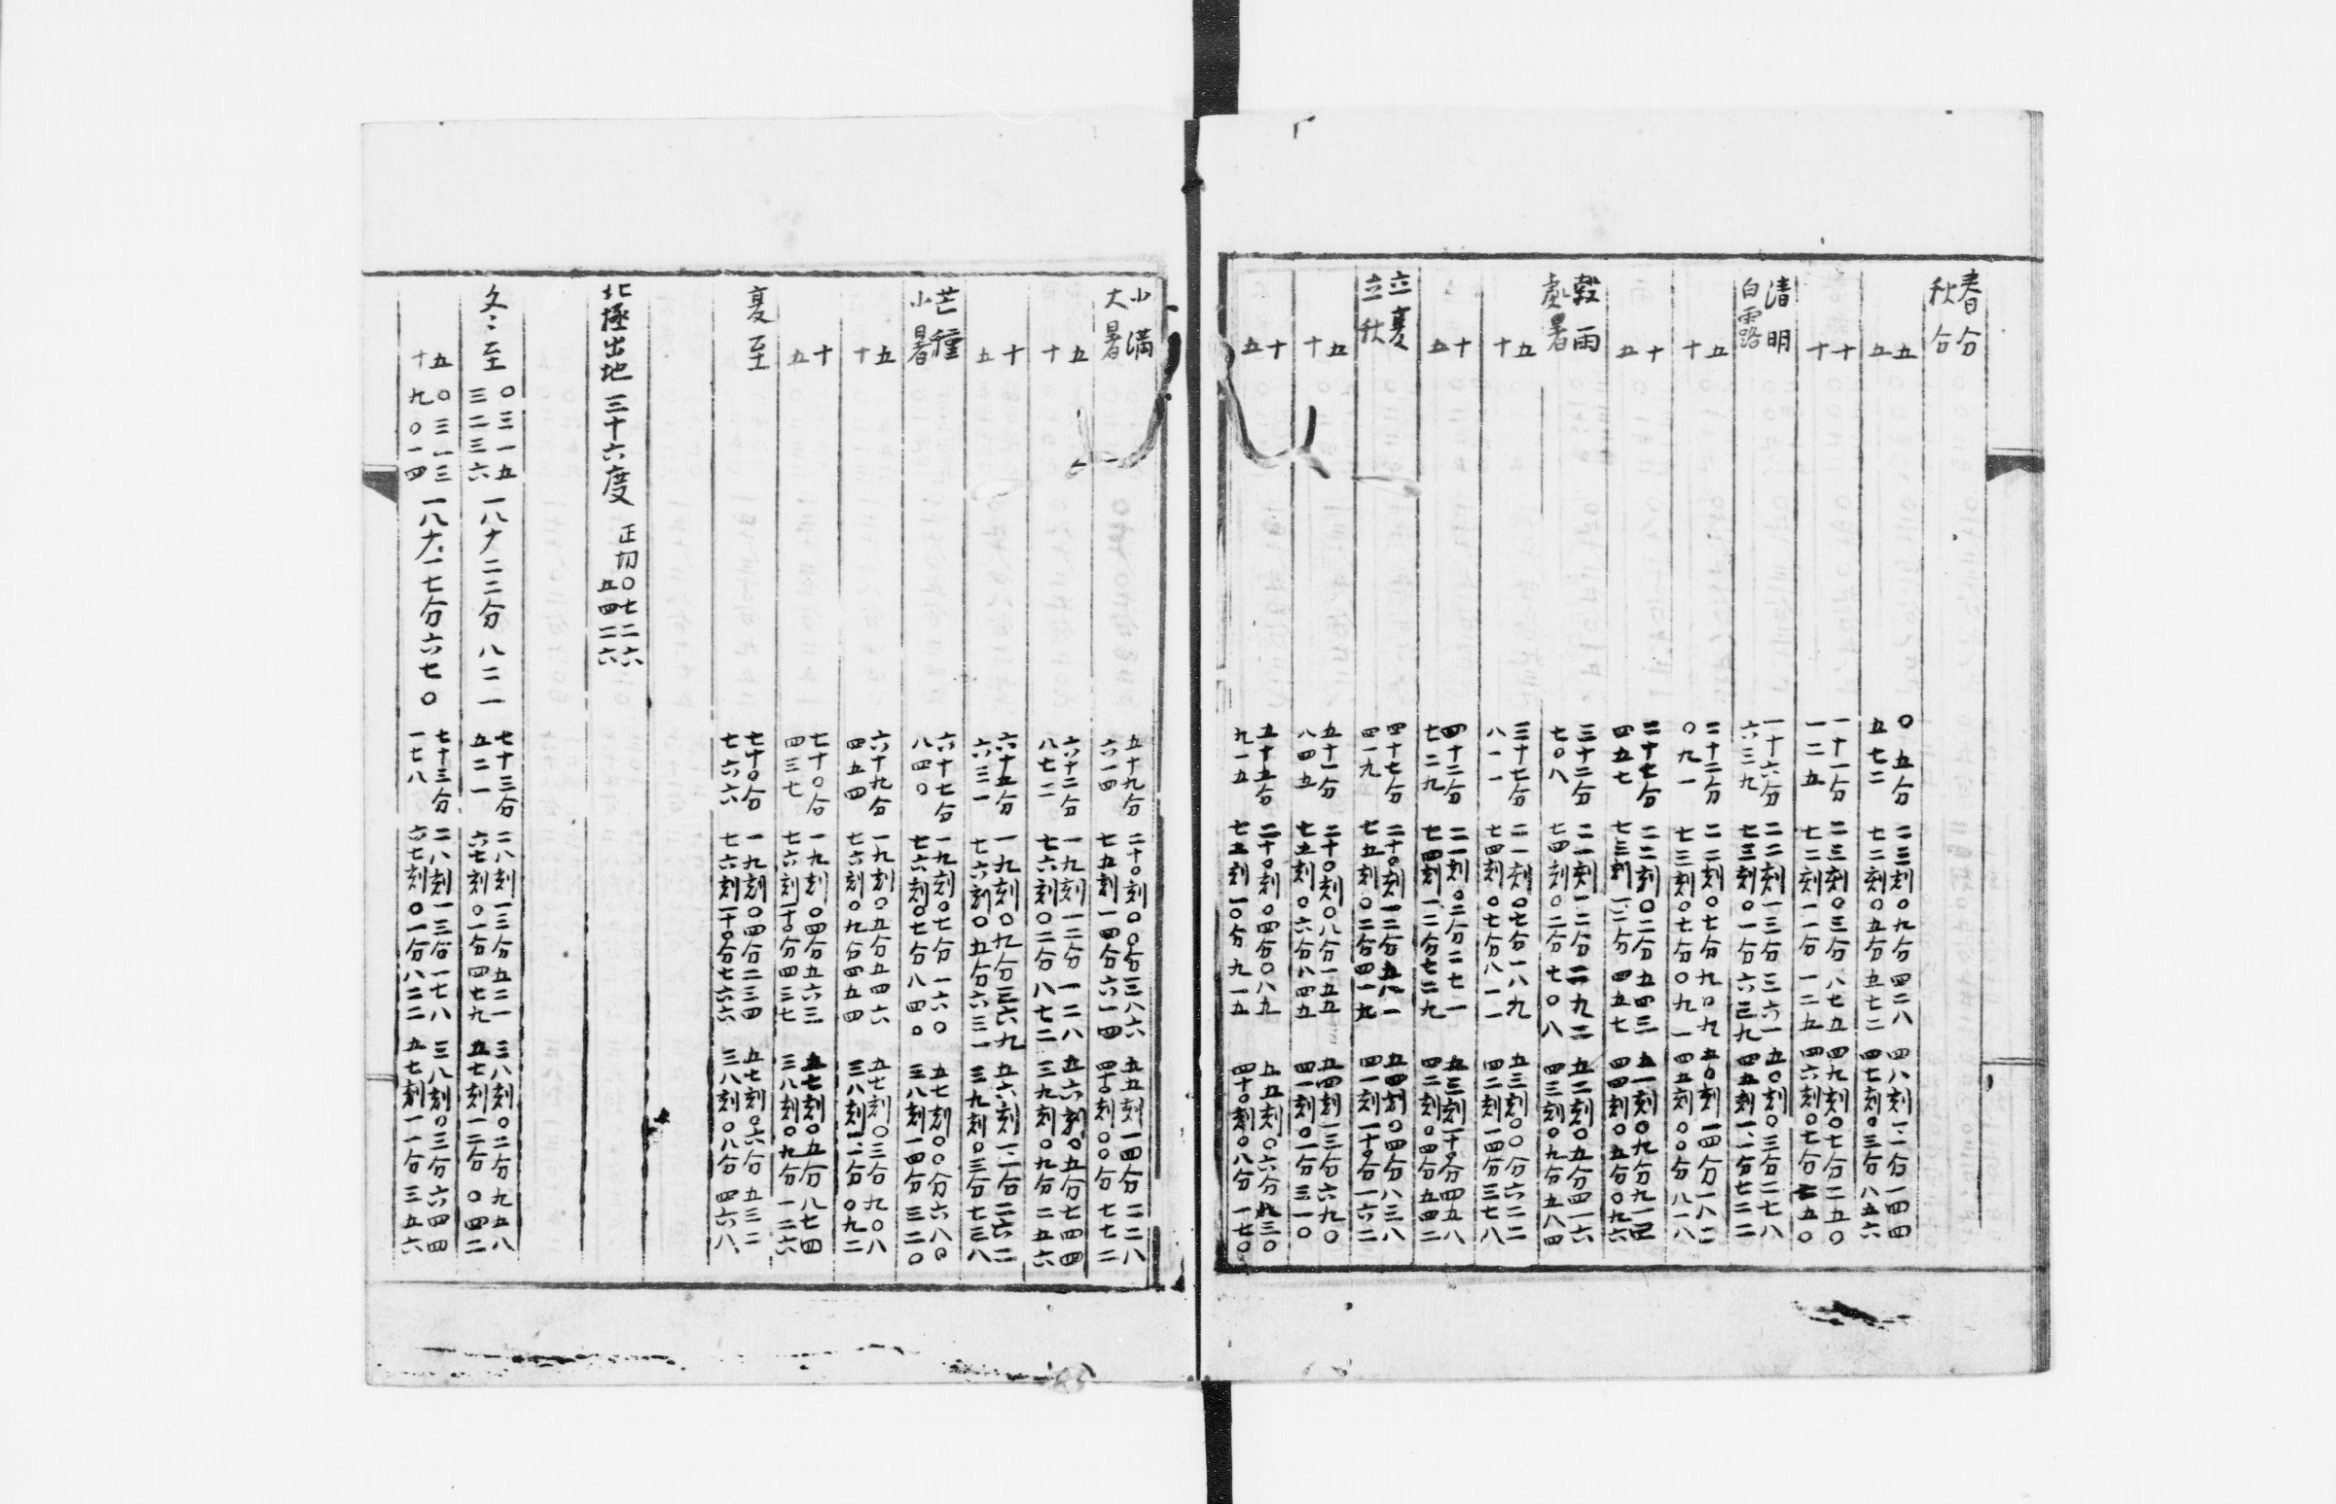 春分
秋分
五　〇五分　二三刻〇九分四二八　四八刻一一分一四四
五　五七二　七二刻〇五分五七二　四七刻〇三分八五六
十　一十一分　二三刻〇三分八七五　四九刻〇七分二五〇
十　一二五　七二刻一一分一二五　四六刻〇七分七五〇
清明　一十六分　二二刻一三分三六一　五〇刻〇三分二七八
白露　六三九　七三刻〇一分六三九　四五刻一一分七二二
五　二十二分　二二刻〇七分九〇九　五〇刻一四分一八二
十　〇九一　七三刻〇七分〇九一　四五刻〇〇分八一八
十　二十七分　二二刻〇二分五四三　五一刻〇九分九一四
五　四五七　七三刻一二分四五七　四四刻〇五分〇九六
穀雨　三十二分　二一刻一二分二九二　五二刻〇五分四一六
處暑　七〇八　七四刻〇二分七〇八　四三刻〇九分五八四
五　三十七分　二一刻〇七分一八九　五三刻〇〇分六二二
十　八一一　七四刻〇七分八一一　四二刻一四分三七八
十　四十二分　二一刻〇二分二七一　五三刻一十〇分四五八
五　七二九　七四刻一二分七二九　四二刻〇四分五四二
立夏　四十七分　二十〇刻一二分五八一　五四刻〇四分八三八
立秋　四一九　七五刻〇二分四一九　四一刻一十〇分一六二
五　五十一分　二十〇刻〇八分一五五　五四刻一三分六九〇
十　八四五　七五刻〇六分八四五　四一刻〇一分三一〇
十　五十五分　二十〇刻〇四分〇八五　五五刻〇六分九三〇
五　九一五　七五刻一〇分九一五　四十〇刻〇八分一七〇
小滿　五十九分　二十〇刻〇〇分三八六　五五刻一四分二二八
大暑　六一四　七五刻一四分六一四　四十〇刻〇〇分七七二
五　六十二分　一九刻一二分一二八　五六刻〇五分七四四
十　八七二　七六刻〇二分八七二　三九刻〇九分二五六
十　六十五分　一九刻〇九分三六九　五六刻一一分二六二
五　六三一　七六刻〇五分六三一　三九刻〇三分七三八
芒種　六十七分　一九刻〇七分一六〇　五七刻〇〇分六八〇
小暑　八四〇　七六刻〇七分八四〇　三八刻一四分三二〇
五　六十九分　一九刻〇五分五四六　五七刻〇三分九〇八
十　四五四　七六刻〇九分四五四　三八刻一一分〇九二
十　七十〇分　一九刻〇四分五六三　五七刻〇五分八七四
五　四三七　七六刻一十〇分四三七　三八刻〇九分一二六
夏至　七十〇分　一九刻〇四分二三四　五七刻〇六分五三二
七六六　七六刻一十〇分七六六　三八刻〇八分四六八
北極出地三十六度　正切〇七二六
五四二六
冬至　〇三一五　一八度二二分八二一　七十三分　二八刻一三分五二一　三八刻〇二分九五八
三二三六　五二一　六七刻〇一分四七九　五七刻一二分〇四二
五　〇三一三　一八度一七分六七〇　七十三分　二八刻一三分一七八　三八刻〇三分六四四
十　九〇一四　一七八　六七刻〇一分八二二　五七刻一一分三五六